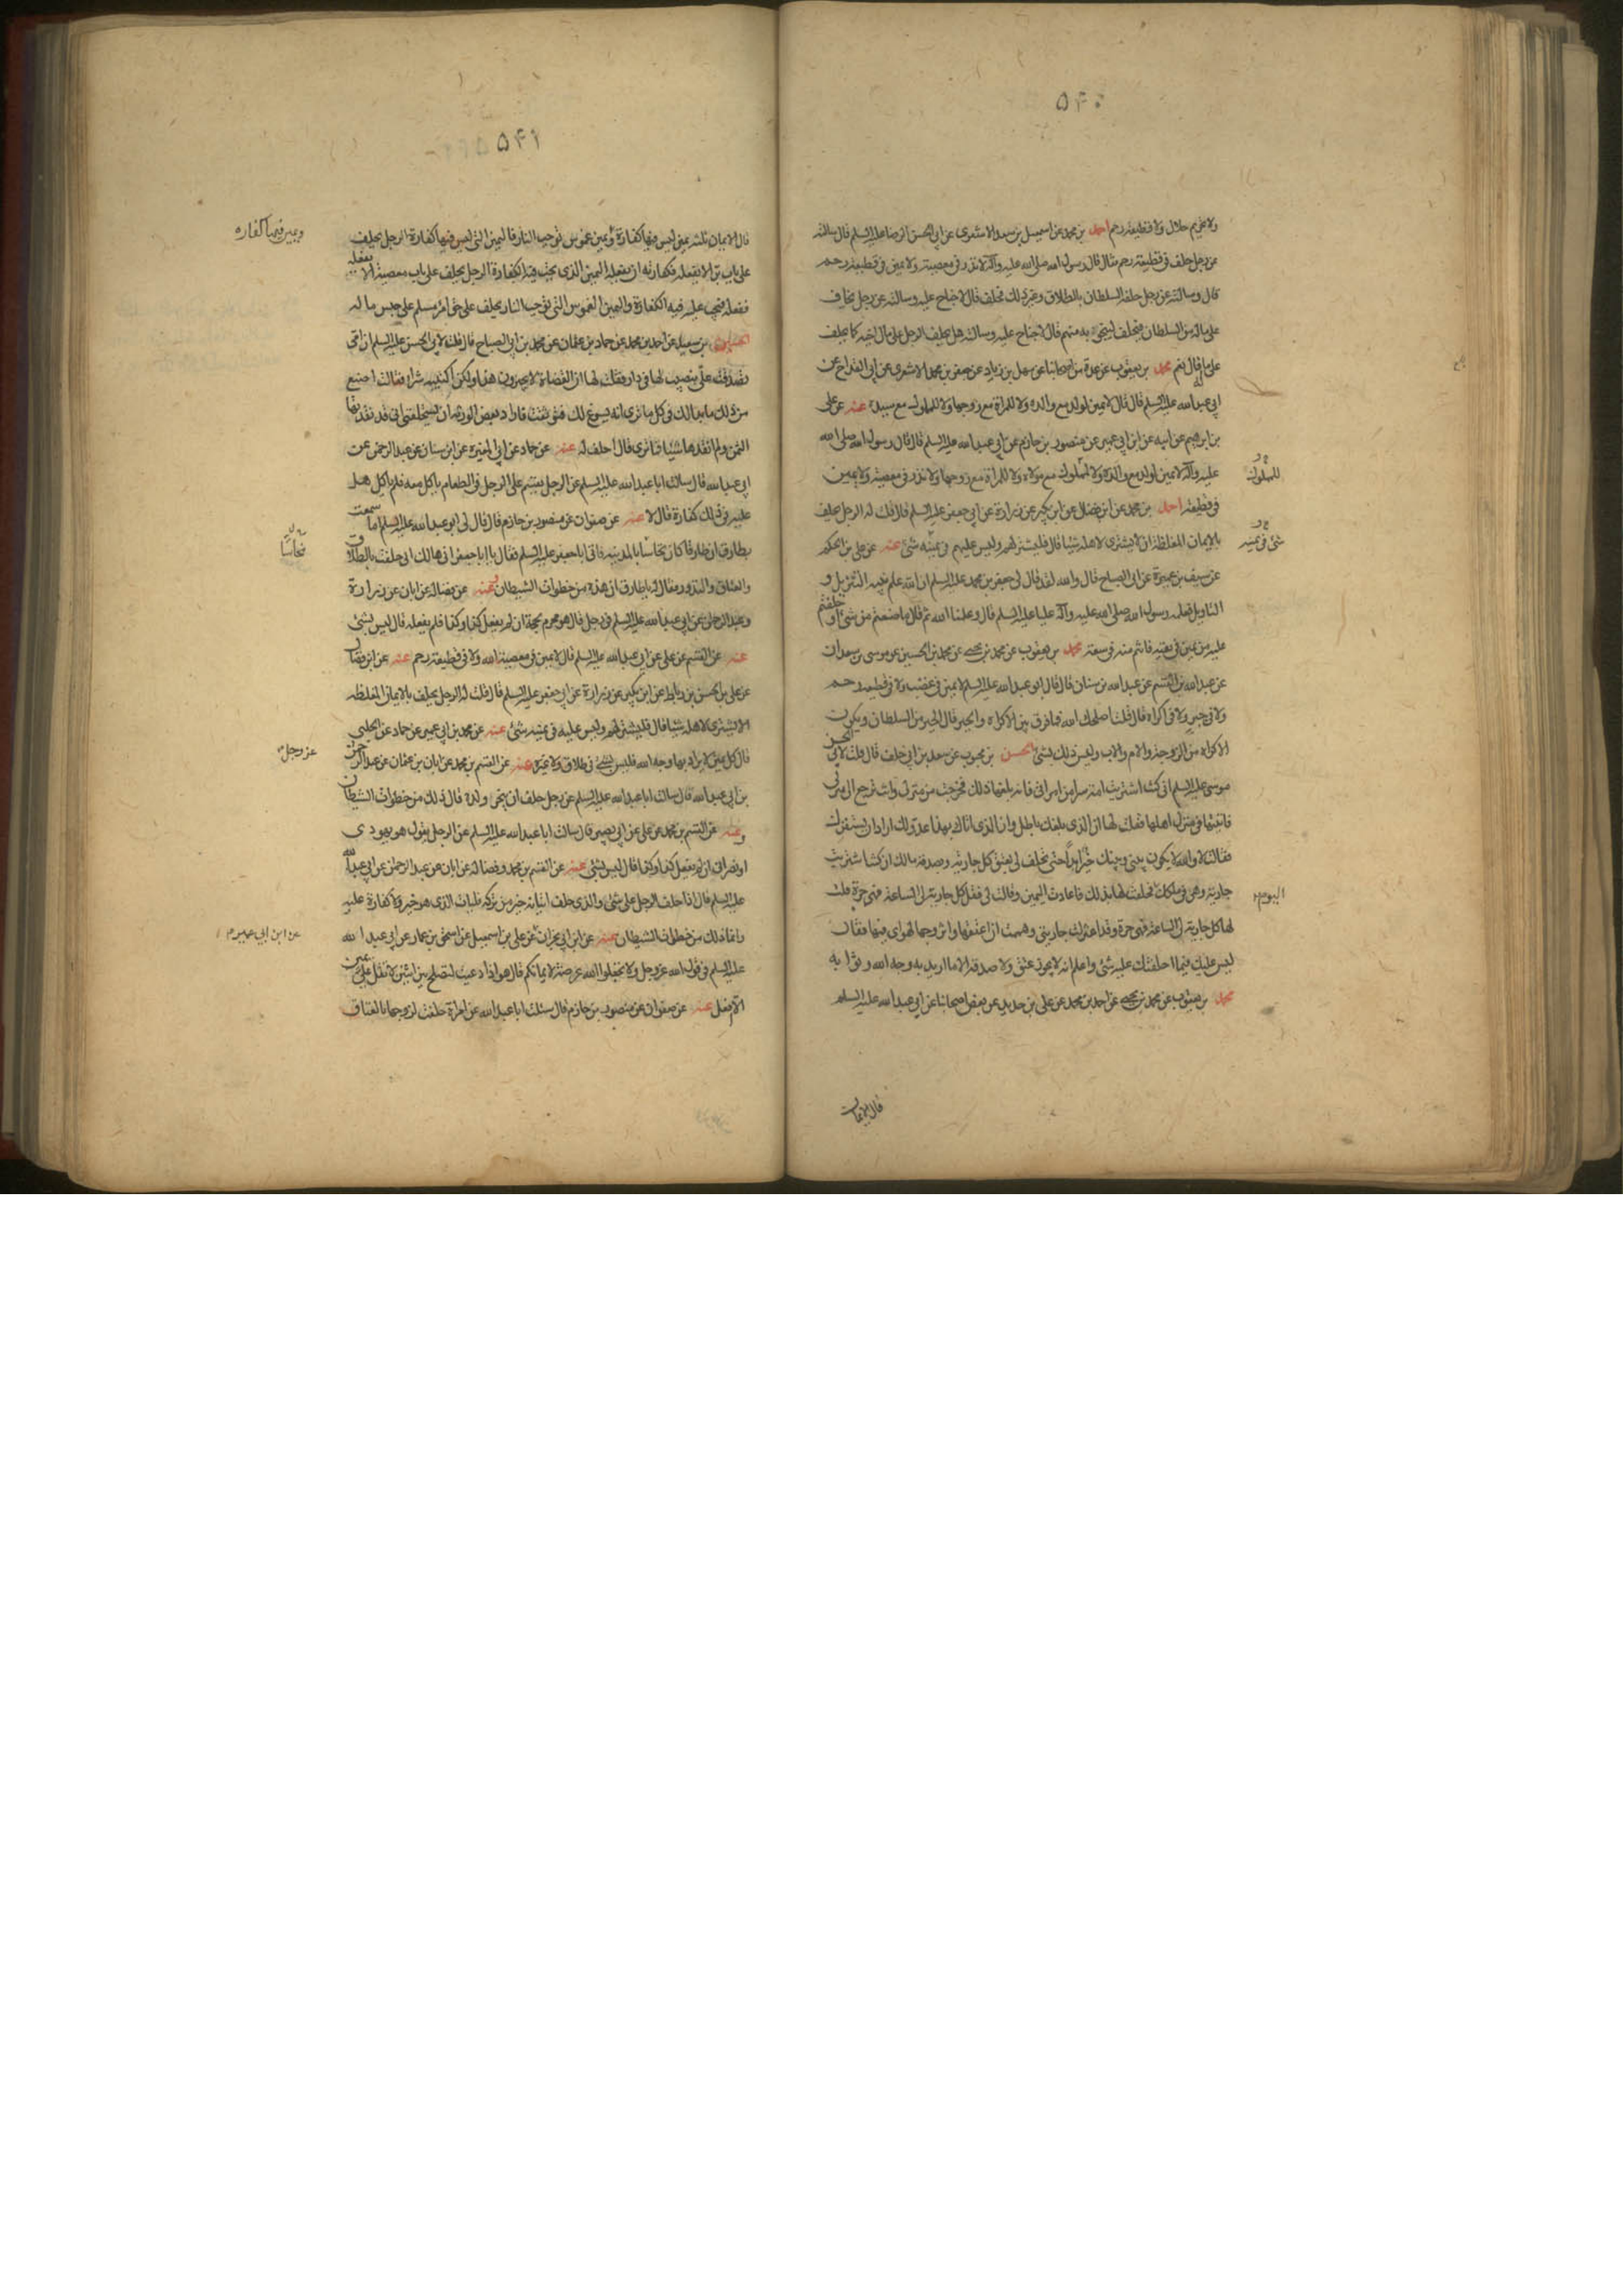 ۵۴۰
ولا تحريم حلال ولا قطيعة رحم احمد بن محمد عن اسمعيل بن سعد الاشعرى عن ابى الحسن الرضا عليه السلم قال سالته
عن رجل حلف فى قطيعة رحم فقال قال رسول الله صلى الله عليه وآله لا نذر فى معصية ولا يمين فى قطيعة رحم
قال وسالته عن رجل حلفه السلطان بالطلاق وغير ذلك فحلف قال لا جناح عليه وسالته عن رجل يخاف
على ماله من السلطان فيحلف لينجى به منهم قال لا جناح عليه وسالته هل يحلف الرجل على مال اخيه كما يحلف
على ماله قال نعم محمد بن يعقوب عن عدة من اصحابنا عن سهل بن زياد عن جعفر بن محمد الاشعرى عن ابن القداح عن
ابى عبد الله عليه السلم قال قال لا يمين لولد مع والده ولا للمراة مع زوجها ولا للمملوك مع سيده عنه عن على
بن ابرهيم عن ابيه عن ابن ابى عمير عن منصور بن حازم عن ابى عبد الله عليه السلم قال قال رسول الله صلى الله
عليه وآله لا يمين لولد مع والده ولا لمملوك مع مولاه ولا للمراة مع زوجها ولا نذر فى معصية ولا يمين
للمملوك
فى قطيعة احمد بن محمد عن ابن فضال عن ابن بكير عن زرارة عن ابى جعفر عليه السلم قال قلت له الرجل يحلف
بالايمان المغلظة ان لا يشترى لاهله شيئا قال فليشتر لهم وليس عليهم فى يمينه شئ عنه عن على بن الحكم
شئ فى يمينه
عن سيف بن عميرة عن ابى الصباح قال والله لقد قال لى جعفر بن محمد عليه السلم ان الله علم نبيه التنزيل و
التاويل فعلمه رسول الله صلى الله عليه وآله عليا عليه السلم قال وعلمنا الله ثم قال ما صنعتم من شئ او حلفتم
عليه من يمين فى تقية فانتم منه فى سعة محمد بن يعقوب عن محمد بن يحيى عن محمد بن الحسين عن موسى بن سعدان
عن عبد الله بن القسم عن عبد الله بن سنان قال قال ابو عبد الله عليه السلم لا يمين فى غضب ولا فى قطيعة رحم
ولا فى جبر ولا فى اكراه قال قلت اصلحك الله فما فرق بين الاكراه والجبر قال الجبر من السلطان ويكون
الاكراه من الزوجة والام والاب وليس ذلك بشئ الحسن بن محبوب عن سعد بن ابى خلف قال قلت لابى الحسن
موسى عليه السلم انى كنت اشتريت امة سرا من امراتى فانه بلغها ذلك فخرجت من منزلى وابت ترجع الى منزلى
فاتيتها فى منزل اهلها فقلت لها ان الذى بلغك باطل وان الذى اتاك بهذا عدو لك اراد ان يستفزك
فقالت لا والله لا يكون بينى وبينك خير ابدا حتى تحلف لى بعتق كل جارية وصدقة مالك ان كنت اشتريت
جارية وهى فى ملكك فحلفت لها بذلك فاعادت اليمين وقالت لى فقل كل جارية لى الساعة فهى حرة فقلت
اليوم
لها كل جارية لى الساعة فهى حرة وقد اعتزلت جاريتى وهممت ان اعتقها واتزوجها لهواى فيها فقال
ليس عليك فيما احلفتك عليه شئ واعلم انه لا يجوز عتق ولا صدقة الا ما اريد به وجه الله وثوابه
محمد بن يعقوب عن محمد بن يحيى عن احمد بن محمد عن على بن حديد عن بعض اصحابنا عن ابى عبد الله عليه السلم
قال الايمان
۵۴۱
قال الايمان ثلثة يمين ليس فيها كفارة ويمين غموس توجب النار فاليمين التى ليس فيها كفارة الرجل يحلف
ويمين فيها كفارة
على باب بر الا يفعله فكفارته ان يفعله واليمين الذى يجب فيه الكفارة الرجل يحلف على باب معصية الا يفعله
ففعله فيجب عليه فيه الكفارة واليمين الغموس التى توجب النار يحلف على حق امرء مسلم على حبس ماله
الحسين بن سعيد عن احمد بن محمد عن حماد بن عثمان عن محمد بن ابى الصباح قال قلت لابى الحسن عليه السلم ان امى
تصدقت على بنصيب لها فى دار فقلت لها ان القضاة لا يجيزون هذا ولكن اكتبيه شراء فقالت اصنع
من ذلك ما بدا لك فى كل ما ترى انه يسوغ لك فتوثقت فاراد بعض الورثة ان يستحلفنى انى قد نقدتها
الثمن ولم انقدها شيئا فما ترى قال احلف له عنه عن حماد عن ابن المغيرة عن ابن سنان عن عبد الرحمن بن
ابى عبد الله قال سالت ابا عبد الله عليه السلم عن الرجل يقسم على الرجل فى الطعام ياكل معه فلم ياكل هل
عليه فى ذلك كفارة قال لا عنه عن صفوان عن منصور بن حازم قال قال لى ابو عبد الله عليه السلم اما سمعت
بطارق ان طارقا كان نخاسا بالمدينة فاتى ابا جعفر عليه السلم فقال يا ابا جعفر انى هالك انى حلفت بالطلاق
نخاسا
والعتاق والنذور فقال له يا طارق ان هذه من خطوات الشيطان عنه عن فضالة عن ابان عن زرارة
وعبد الرحمن عن ابى عبد الله عليه السلم فى رجل قال هو محرم بحجة ان لم يفعل كذا وكذا فلم يفعله قال ليس بشئ
عنه عن القسم عن على عن ابى عبد الله عليه السلم قال لا يمين فى معصية الله ولا فى قطيعة رحم عنه عن ابن فضال
عن على بن الحسن بن رباط عن ابن بكير عن زرارة عن ابى جعفر عليه السلم قال قلت له الرجل يحلف بالايمان المغلظه
الا يشترى لاهله شيئا قال فليشتر لهم وليس عليه فى يمينه شئ عنه عن محمد بن ابى عمير عن حماد عن الحلبى
قال كل يمين لا يراد بها وجه الله فليس بشئ فى طلاق ولا غيره عنه عن القسم بن محمد عن ابان بن عثمان عن عبد الرحمن
عز وجل
بن ابى عبد الله قال سالت ابا عبد الله عليه السلم عن رجل حلف ان ينحر ولده قال ذلك من خطوات الشيطان
وعنه عن القسم بن محمد عن على عن ابى بصير قال سالت ابا عبد الله عليه السلم عن الرجل يقول هو يهودى
او نصرانى ان لم يفعل كذا وكذا قال ليس بشئ عنه عن القسم بن محمد وفضالة عن ابان عن عبد الرحمن عن ابى عبد الله
عليه السلم قال اذا حلف الرجل على شئ والذى حلف اتيانه خير من تركه فليات الذى هو خير ولا كفارة عليه
وانما ذلك من خطوات الشيطان عنه عن ابن ابى عمير عن على بن اسمعيل عن اسحق بن عمار عن ابى عبد الله
عن ابن ابى عمير
عليه السلم فى قول الله عز وجل ولا تجعلوا الله عرضة لايمانكم قال هو اذا دعيت لتصلح بين اثنين لا تقل على يمين
الا افعل عنه عن صفوان عن منصور بن حازم قال سئلت ابا عبد الله عن امراة حلفت لزوجها بالعتاق